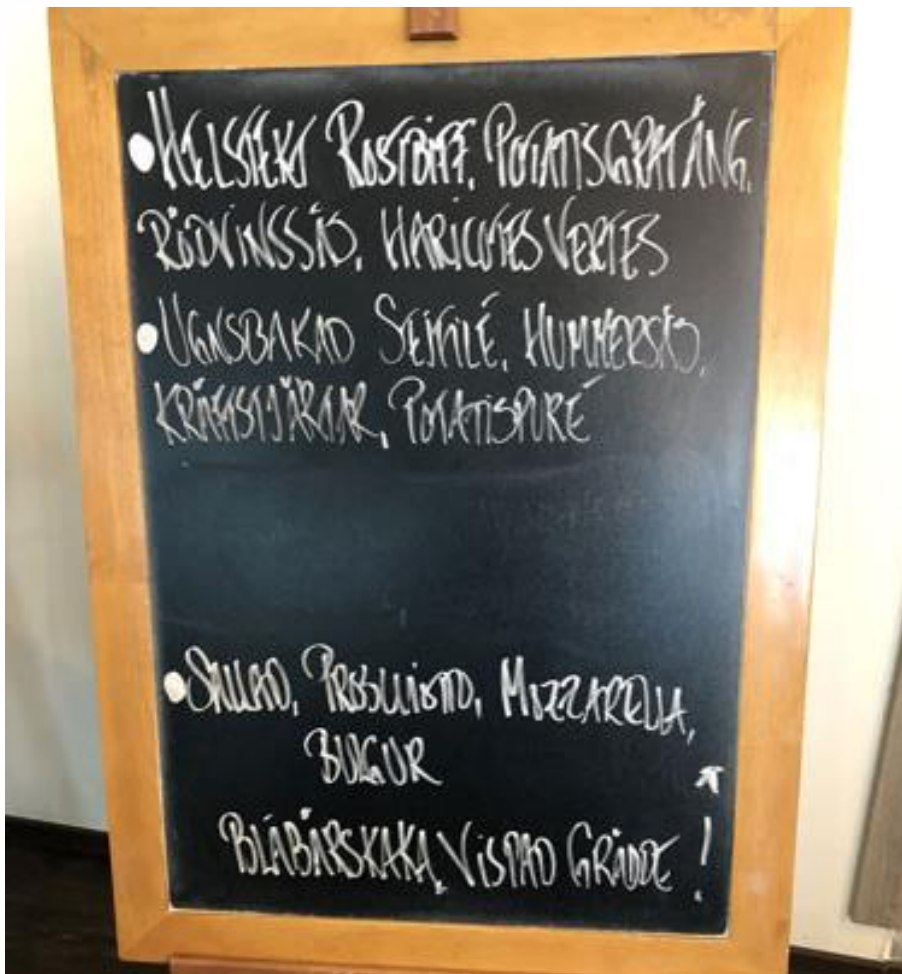 • HELSTEKT ROSTBIFF, POTATISGRATÄNG,
RÖDVINSSÅS, HARICOTES VERTES
• UGNSBAKAD SEJFILÉ, HUMMERSÅS,
KRÄFTSTJÄRTAR, POTATISPURÉ
• SALLAD, PROSCIUTTO, MOZZARELLA,
BULGUR
BLÅBÄRSKAKA, VISPAD GRÄDDE!